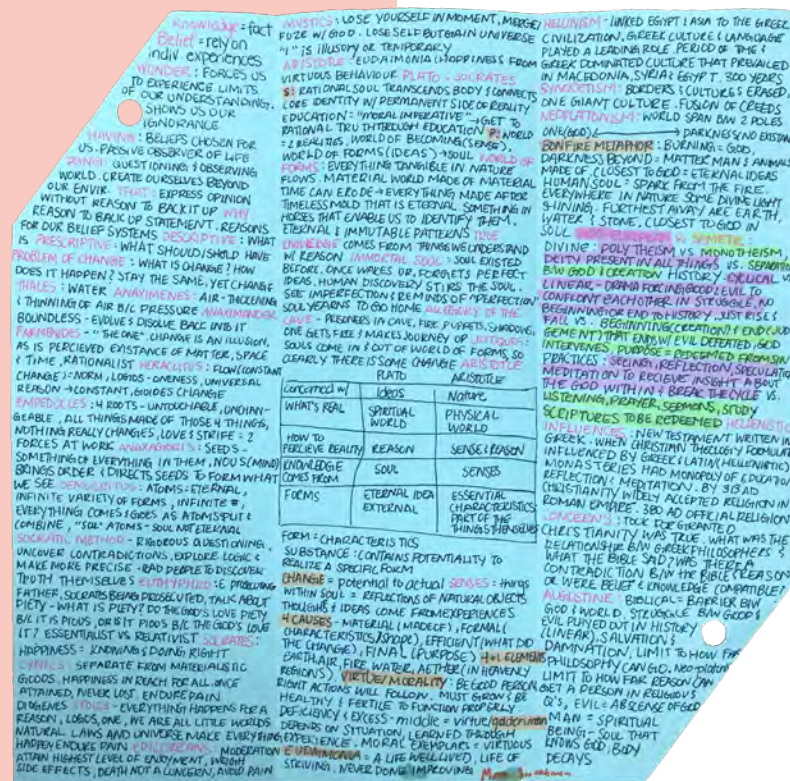 Knowledge = fact
Belief = rely on
indiv experiences
WONDER: FORCES US
TO EXPERIENCE LIMITS
OF OUR UNDERSTANDING.
SHOWS US OUR
IGNORANCE
HAVING: BELIEFS CHOSEN FOR
US. PASSIVE OBSERVER OF LIFE
DOING: QUESTIONING & OBSERVING
WORLD. CREATE OURSELVES BEYOND
OUR ENVIR. THAT: EXPRESS OPINION
WITHOUT REASON TO BACK IT UP WHY
REASON TO BACK UP STATEMENT. REASONS
FOR OUR BELIEF SYSTEMS DESCRIPTIVE: WHAT
IS PRESCRIPTIVE: WHAT SHOULD/SHOULD HAVE
PROBLEM OF CHANGE: WHAT IS CHANGE? HOW
DOES IT HAPPEN? STAY THE SAME, YET CHANGE
THALES: WATER ANAXIMENES: AIR - THICKENING
& THINNING OF AIR B/C PRESSURE ANAXIMANDER
BOUNDLESS - EVOLVE & DISOLVE BACK INTO IT
PARMENIDES - "THE ONE". CHANGE IS AN ILLUSION,
AS IS PERCIEVED EXISTANCE OF MATTER, SPACE
& TIME, RATIONALIST HERACLITUS: FLOW (CONSTANT
CHANGE): NORM, LOGOS - ONENESS, UNIVERSAL
REASON → CONSTANT, GUIDES CHANGE
EMPEDOCLES: 4 ROOTS - UNTOUCHABLE, UNCHAN-
GEABLE, ALL THINGS MADE OF THOSE 4 THINGS,
NOTHING REALLY CHANGES, LOVE & STRIFE = 2
FORCES AT WORK ANAXAGORAS: SEEDS -
SOMETHING OF EVERYTHING IN THEM, NOUS (MIND)
BRINGS ORDER & DIRECTS SEEDS TO FORM WHAT
WE SEE DEMOCRITUS: ATOMS = ETERNAL,
INFINITE VARIETY OF FORMS, INFINITE #,
EVERYTHING COMES & GOES AS ATOMS SPLIT &
COMBINE, "SOUL" ATOMS - SOUL NOT ETERNAL
SOCRATIC METHOD - RIGOROUS QUESTIONING,
UNCOVER CONTRADICTIONS, EXPLORE LOGIC &
MAKE MORE PRECISE - LEAD PEOPLE TO DISCOVER
TRUTH THEMSELVES EUTHYPHRO: E PROSECUTING
FATHER, SOCRATES BEING PROSECUTED, TALK ABOUT
PIETY - WHAT IS PIETY? DO THE GOD'S LOVE PIETY
B/C IT IS PIOUS, OR IS IT PIOUS B/C THE GOD'S LOVE
IT? ESSENTIALIST VS RELATIVIST SOCRATES:
HAPPINESS = KNOWING & DOING RIGHT
CYNICS: SEPARATE FROM MATERIALISTIC
GOODS. HAPPINESS IN REACH FOR ALL. ONCE
ATTAINED, NEVER LOST. ENDURE PAIN
DIOGENES STOICS - EVERYTHING HAPPENS FOR A
REASON, LOGOS, ONE, WE ARE ALL LITTLE WORLDS
NATURAL LAWS AND UNIVERSE MAKE EVERYTHING
HAPPEN ENDURE PAIN EPICUREANS: MODERATION
ATTAIN HIGHEST LEVEL OF ENJOYMENT, WEIGH
SIDE EFFECTS, DEATH NOT A CONCERN, AVOID PAIN
MYSTICS: LOSE YOURSELF IN MOMENT, MERGE/
FUZE W/ GOD. LOSE SELF BUT GAIN UNIVERSE
"I" IS ILLUSORY OR TEMPORARY
ARISTOTLE: EUDAIMONIA (HAPPINESS FROM
VIRTUOUS BEHAVIOUR PLATO & SOCRATES
S: RATIONAL SOUL TRANSCENDS BODY & CONNECTS
CORE IDENTITY W/ PERMANENT SIDE OF REALITY
EDUCATION: "MORAL IMPERATIVE" → GET TO
RATIONAL TRUTH THROUGH EDUCATION P: WORLD
= 2 REALITIES, WORLD OF BECOMING (SENSE),
WORLD OF FORMS (IDEAS) → SOUL WORLD OF
FORMS: EVERYTHING TANGIBLE IN NATURE
FLOWS. MATERIAL WORLD MADE OF MATERIAL
TIME CAN ERODE → EVERYTHING MADE AFTER
TIMELESS MOLD THAT IS ETERNAL SOMETHING IN
HORSES THAT ENABLE US TO IDENTIFY THEM.
ETERNAL & IMMUTABLE PATTERNS TRUE
KNOWLEDGE COMES FROM THINGS WE UNDERSTAND
W/ REASON IMMORTAL SOUL: SOUL EXISTED
BEFORE. ONCE WAKES UP, FORGETS PERFECT
IDEAS. HUMAN DISCOVERY STIRS THE SOUL.
SEE IMPERFECTION & REMINDS OF "PERFECTION"
SOUL YEARNS TO GO HOME ALLEGORY OF THE
CAVE - PRISONERS IN CAVE, FIRE, PUPPETS, SHADOWS,
ONE GETS FREE & MAKES JOURNEY UP CRITIQUES:
SOULS COME IN & OUT OF WORLD OF FORMS, SO
CLEARLY THERE IS SOME CHANGE ARISTOTLE
PLATO ARISTOTLE
Concerned w/ Ideas Nature
WHAT'S REAL SPIRITUAL WORLD PHYSICAL WORLD
HOW TO PERCIEVE REALITY REASON SENSE & REASON
KNOWLEDGE COMES FROM SOUL SENSES
FORMS ETERNAL IDEA EXTERNAL ESSENTIAL CHARACTERISTICS PART OF THE THINGS THEMSELVES
FORM = CHARACTERISTICS
SUBSTANCE: CONTAINS POTENTIALITY TO
REALIZE A SPECIFIC FORM
CHANGE = potential to actual SENSES = things
WITHIN SOUL = REFLECTIONS OF NATURAL OBJECTS
THOUGHTS & IDEAS COME FROM EXPERIENCES
4 CAUSES - MATERIAL (MADE OF), FORMAL (
CHARACTERISTICS/SHAPE), EFFICIENT (WHAT DID
THE CHANGE), FINAL (PURPOSE) 4+1 ELEMENTS
EARTH, AIR, FIRE, WATER, AETHER (IN HEAVENLY
REGIONS) VIRTUE/MORALITY: BE GOOD PERSON
RIGHT ACTIONS WILL FOLLOW. MUST GROW & BE
HEALTHY & FERTILE TO FUNCTION PROPERLY
DEFICIENCY & EXCESS - middle = virtue/golden mean
DEPENDS ON SITUATION, LEARNED THROUGH
EXPERIENCE. MORAL EXEMPLARS = VIRTUOUS
EUDAIMONIA = A LIFE WELL LIVED, LIFE OF
STRIVING, NEVER DONE IMPROVING
HELLINISM - LINKED EGYPT & ASIA TO THE GREEK
CIVILIZATION, GREEK CULTURE & LANGUAGE
PLAYED A LEADING ROLE. PERIOD OF TIME &
GREEK DOMINATED CULTURE THAT PREVAILED
IN MACEDONIA, SYRIA & EGYPT. 300 YEARS
SYNCRETISM: BORDERS & CULTURES ERASED,
ONE GIANT CULTURE. FUSION OF CREEDS
NEOPLATONISM: WORLD SPAN B/W 2 POLES
ONE (GOD) ← → DARKNESS (NO EXISTANCE
BONFIRE METAPHOR: BURNING = GOD,
DARKNESS BEYOND = MATTER MAN & ANIMALS
MADE OF. CLOSEST TO GOD = ETERNAL IDEAS
HUMAN SOUL = SPARK FROM THE FIRE.
EVERYWHERE IN NATURE SOME DIVINE LIGHT
SHINING. FURTHEST AWAY ARE EARTH,
WATER & STONE. CLOSEST TO GOD IN
SOUL INDO-EUROPEAN vs SEMETIC:
DIVINE: POLYTHEISM VS. MONOTHEISM,
DEITY PRESENT IN ALL THINGS VS. SEPARATION
B/W GOD & CREATION HISTORY: CYCLICAL VS
LINEAR - DRAMA FORCING GOOD & EVIL TO
CONFRONT EACH OTHER IN STRUGGLE, NO
BEGINNING OR END TO HISTORY, JUST RISE &
FALL VS. BEGINNING (CREATION) & END (JUD-
GEMENT) THAT ENDS W/ EVIL DEFEATED, GOD
INTERVENES. PURPOSE = REDEEMED FROM SIN
PRACTICES: SEEING, REFLECTION, SPECULATION
MEDITATION TO RECIEVE INSIGHT ABOUT
THE GOD WITHIN & BREAK THE CYCLE VS.
LISTENING, PRAYER, SERMONS, STUDY
SCRIPTURES TO BE REDEEMED HELLENISTIC
INFLUENCES: NEW TESTAMENT WRITTEN IN
GREEK. WHEN CHRISTIAN THEOLOGY FORMULATED
INFLUENCED BY GREEK & LATIN (HELLENISTIC)
MONASTERIES HAD MONOPOLY OF EDUCATION
REFLECTION & MEDITATION. BY 313 AD
CHRISTIANITY WIDELY ACCEPTED RELIGION IN
ROMAN EMPIRE. 380 AD OFFICIAL RELIGION
CONCERNS: TOOK FOR GRANTED
CHRISTIANITY WAS TRUE. WHAT WAS THE
RELATIONSHIP B/W GREEK PHILOSOPHERS &
WHAT THE BIBLE SAID? WAS THERE A
CONTRADICTION B/W THE BIBLE & REASON
OR WERE BELIEF & KNOWLEDGE COMPATIBLE?
AUGUSTINE: BIBLICAL = BARRIER B/W
GOD & WORLD. STRUGGLE B/W GOOD &
EVIL PLAYED OUT IN HISTORY
(LINEAR), SALVATION &
DAMNATION, LIMIT TO HOW FAR
PHILOSOPHY CAN GO. Neo-platonic
LIMIT TO HOW FAR REASON CAN
GET A PERSON IN RELIGIOUS
Q'S, EVIL = ABSENSE OF GOD
MAN = SPIRITUAL
BEING - SOUL THAT
KNOWS GOD, BODY
DECAYS